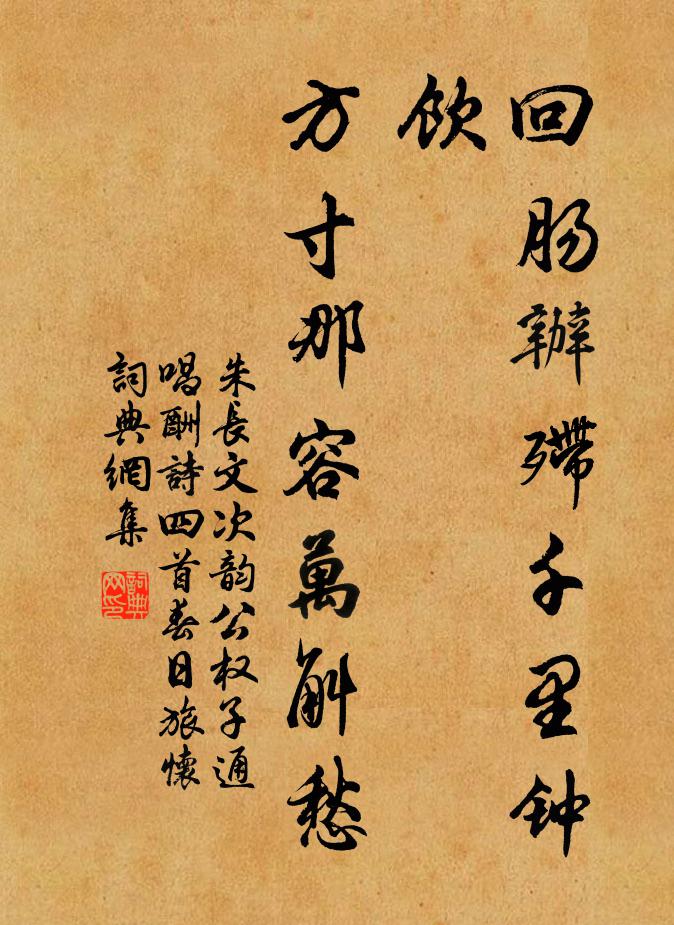 回肠辦殢千里钟
飲
方寸那容萬斛愁
朱長文次韵公权子通
唱酬詩四首春日旅懷
詞典網集
詞典
网印